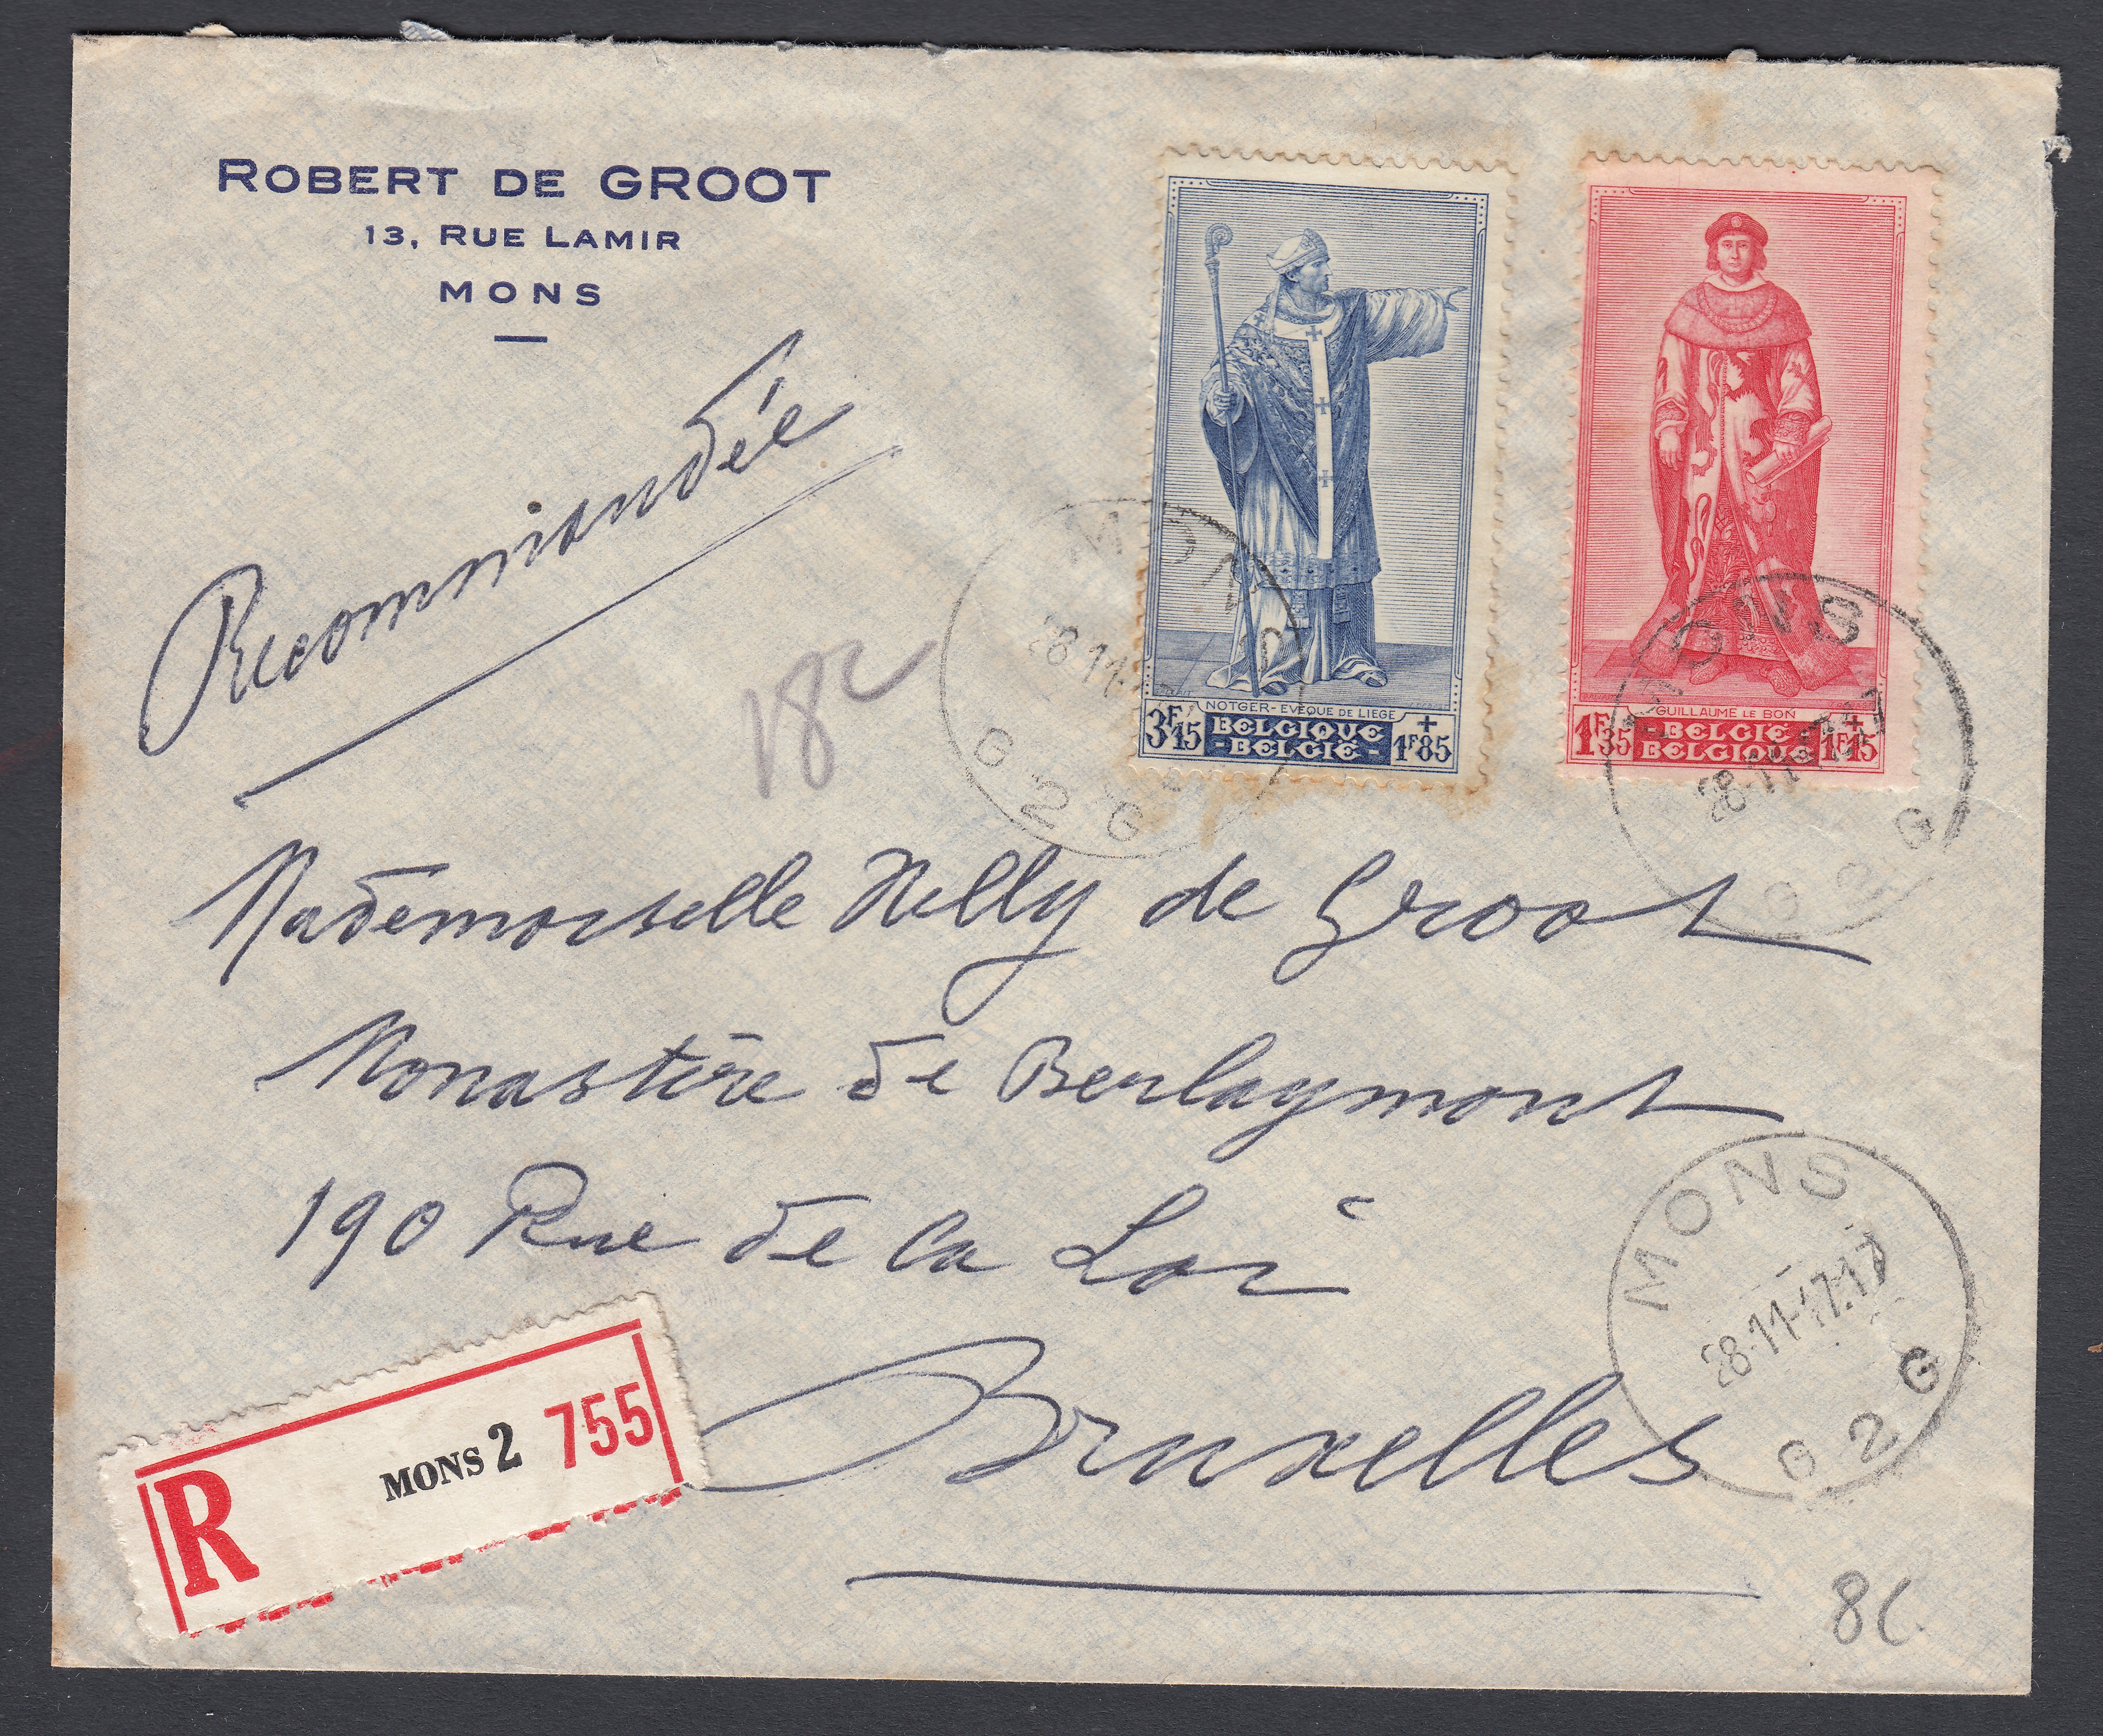 ROBERT DE GROOT
13, RUE LAMIR
MONS
Recommandée
NOTGER-EVEQUE DE LIEGE
3F15 BELGIQUE -BELGIË- +1F85
GUILLAUME LE BON
1F35 BELGIË BELGIQUE +1F15
MONS
28.11
G2G
MONS
28.11
G2G
18c
Mademoiselle Nelly de Groot
Monastère de Berlaymont
190 Rue de la Loi
Bruxelles
MONS
28.11-17.17
G2G
R MONS 2 755